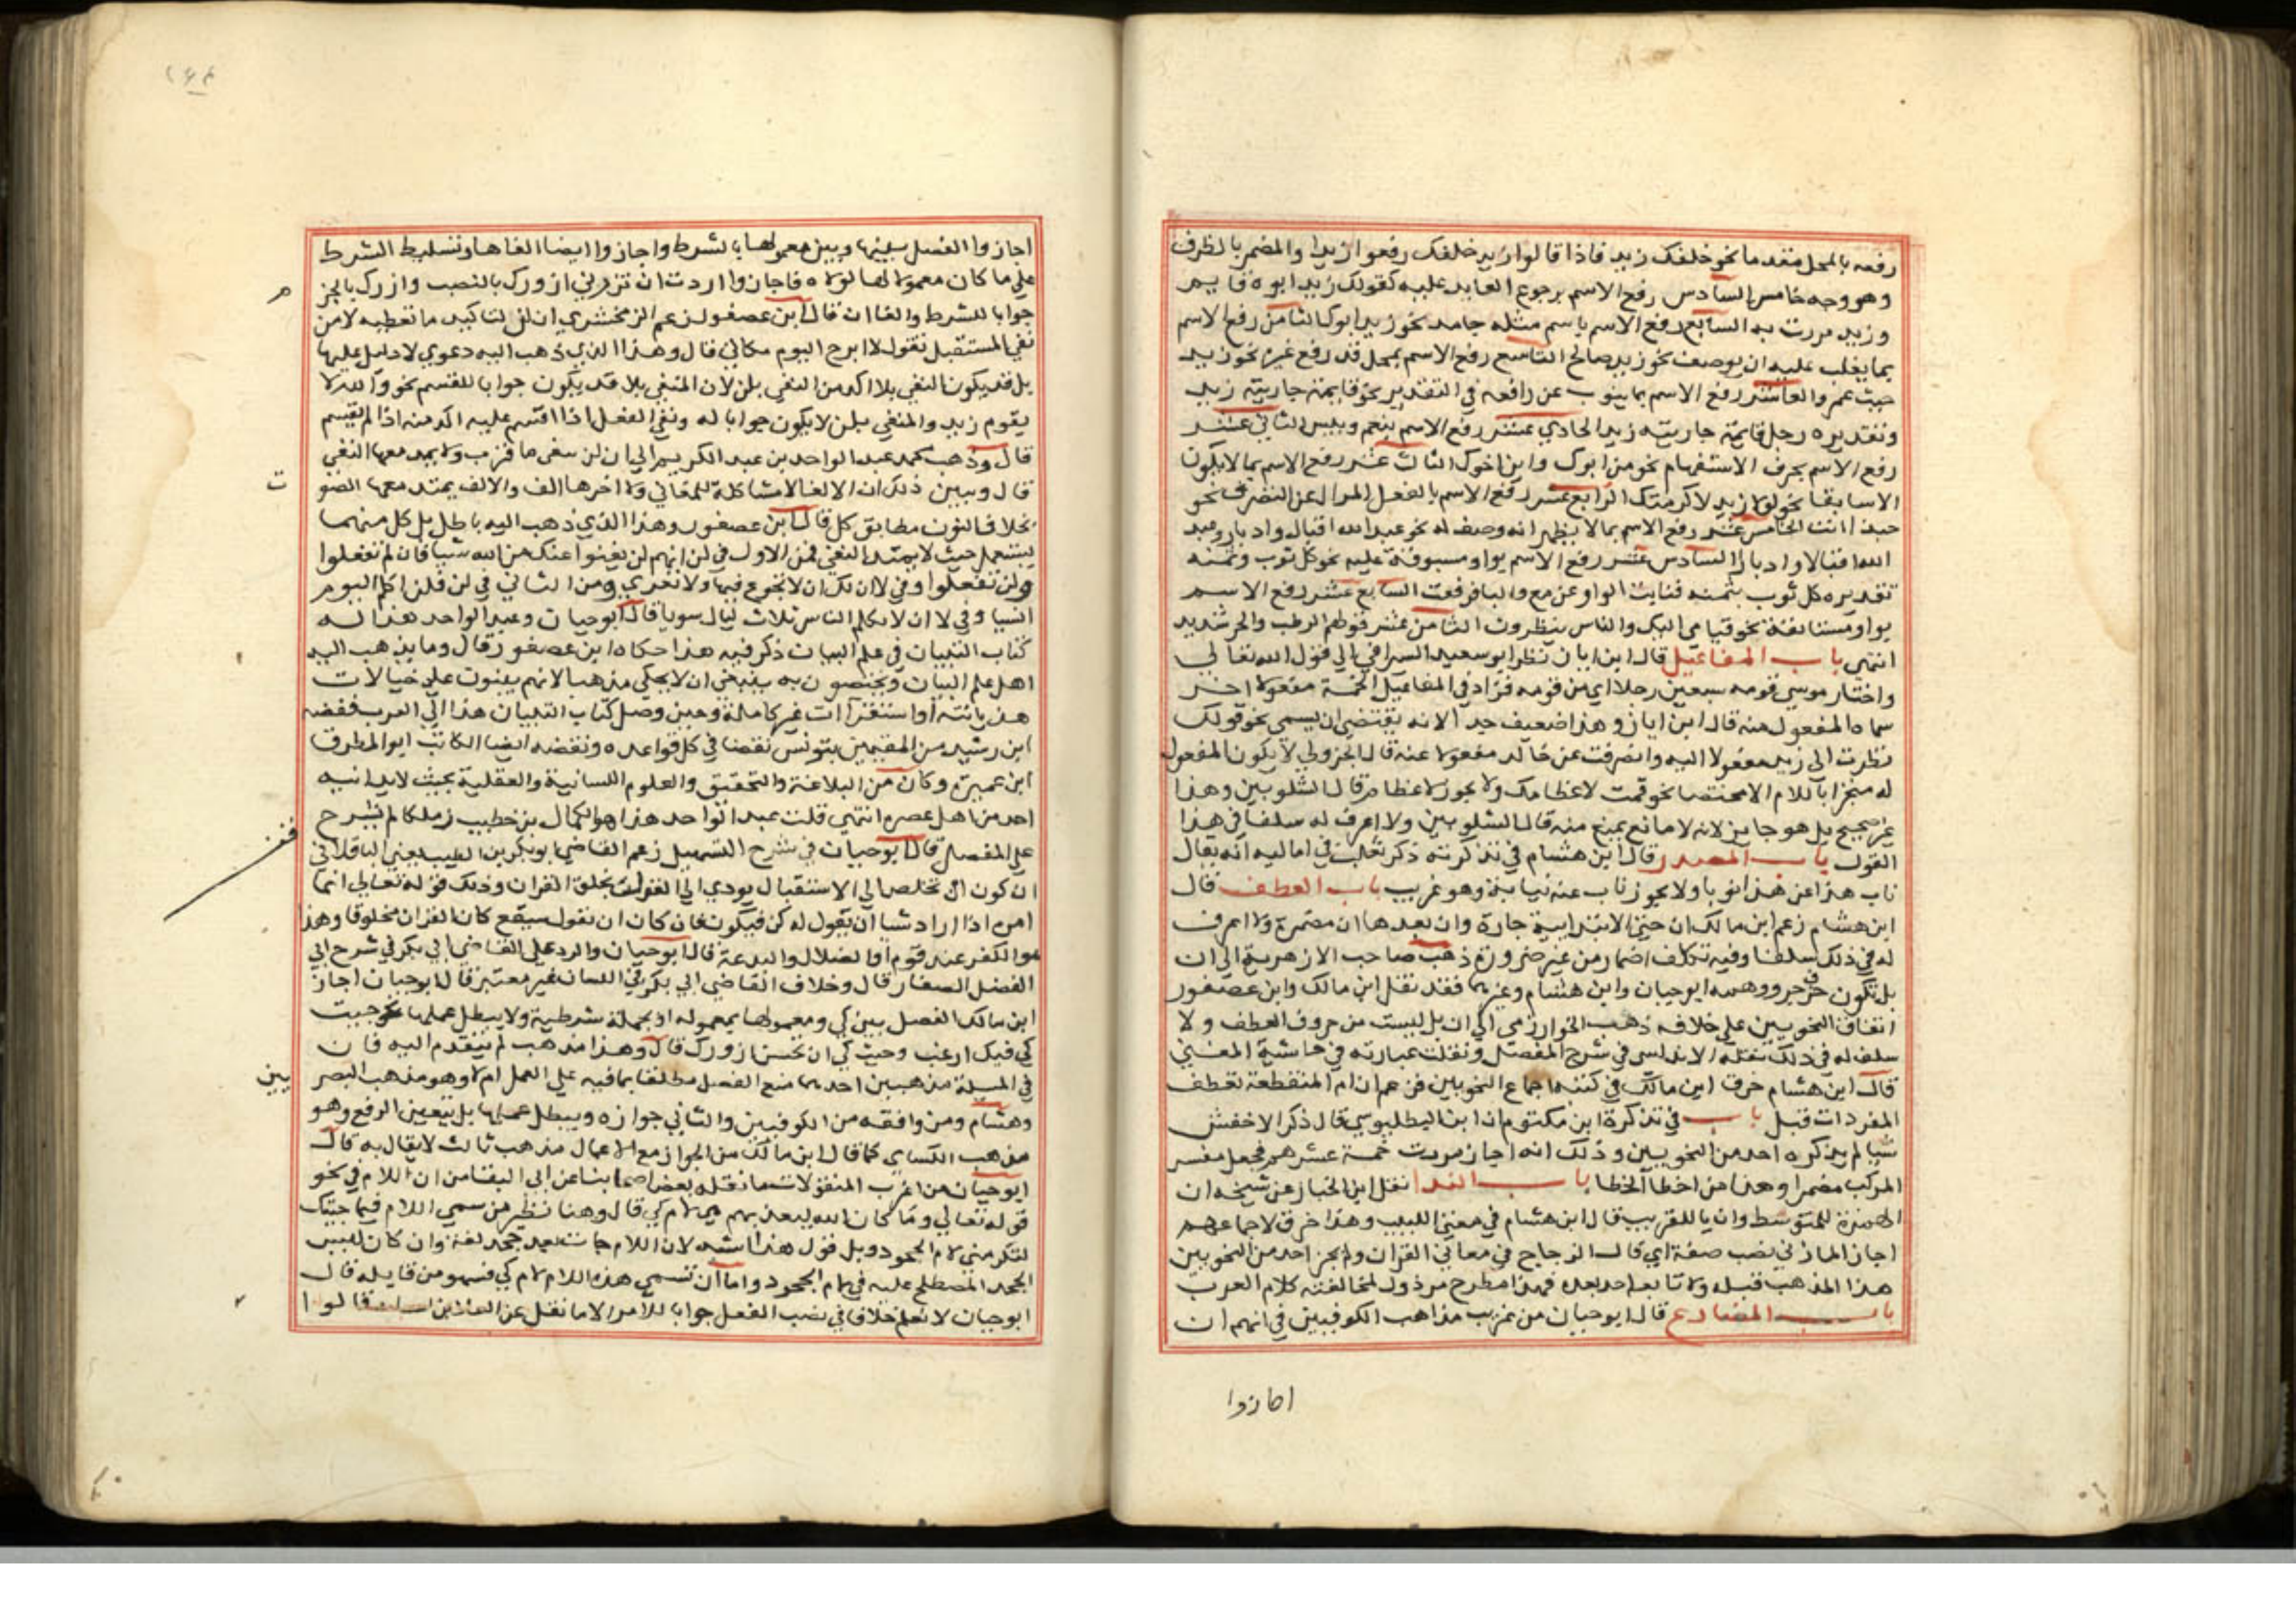 رفعه بالمحل متقدما نحو خلفك زيد فاذا قالوا زيد خلفك رفعوا زيدا والمضمر بالظرف
وهو وجه خامس السادس رفع الاسم برجوع العايد عليه كقولك زيد ابوه قايم
وزيد مررت به السابع رفع الاسم باسم مثله جامد نحو زيد ابوك الثامن رفع الاسم
بما يغلب عليه ان يوصف نحو زيد صالح التاسع رفع الاسم بمحل قد رفع غيره نحو زيد
حيث عمرو العاشر رفع الاسم بما ينوب عن رافعه في التقدير نحو قايمة جاريته زيد
وتقديره رجل قايمة جاريته زيد الحادي عشر رفع الاسم بنعم وبيس الثاني عشر
رفع الاسم بحرف الاستفهام نحو من ابوك واين اخوك الثالث عشر رفع الاسم بما لا يكون
الا سابقا نحو لولا زيد لاكرمتك الرابع عشر رفع الاسم بالفعل المزال عن التصرف نحو
حبذا انت الخامس عشر رفع الاسم بما لا يظهر انه وصف له نحو عبد الله اقبال وادبار وعبد
الله اقبالا وادبارا السادس عشر رفع الاسم بواو مسبوقة عليه نحو كل ثوب وثمنه
تقديره كل ثوب بثمنه فنابت الواو عن مع والبا فرفعت السابع عشر رفع الاسم
بواو مستانفة نحو قيامي اليك والناس ينظرون الثامن عشر قولهم الرطب والحر شديد
انتهى باب المفاعيل قال ابن اياز نظر ابو سعيد السيرافي الي قول الله تعالي
واختار موسي قومه سبعين رجلا اي من قومه فزاد في المفاعيل الخمسة مفعولا اخر
سماه المفعول منه قال ابن اياز وهذا ضعيف جدا لانه يقتضي ان يسمي نحو قولك
نظرت الى زيد مفعولا اليه وانصرفت عن خالد مفعولا عنه قال الجزولي لا يكون المفعول
له منجرا باللام الا مختصا نحو قمت لاعظامك ولا يجوز لاعظام قال الشلوبين وهذا
غير صحيح بل هو جايز لانه لا مانع يمنع منه قال الشلوبين ولا اعرف له سلفا في هذا
القول باب المصدر قال ابن هشام في تذكرته ذكر ثعلب في اماليه انه يقال
ناب هذا عن هذا نوبا ولا يجوز ناب عنه نيابة وهو غريب باب العطف قال
ابن هشام زعم ابن مالك ان حتى الابتدايية جارة وان بعدها ان مضمرة ولا اعرف
له في ذلك سلفا وفيه تكلف اضمار من غير ضرورة ذهب صاحب الازهرية الي ان
بل تكون حرف جر ووهمه ابو حيان وابن هشام وغيرهما فقد نقل ابن مالك وابن عصفور
اتفاق النحويين علي خلافه ذهب الخوارزمي الي ان بل ليست من حروف العطف ولا
سلف له في ذلك نقله الاندلسي في شرح المفصل ونقلت عبارته في حاشية المغني
قال ابن هشام خرق ابن مالك في كتبه اجماع النحويين فزعم ان ام المنقطعة تعطف
المفردات قبل باب في تذكرة ابن مكتوم ان ابن البطليوسي قال ذكر الاخفش
شيا لم يذكره احد من النحويين وذلك انه اجاز مررت خمسة عشرهم فجعل مفسر
المركب مضمرا وهذا من اخطا الخطا باب الندا نقل ابن الخباز عن شيخه ان
الهمزة للمتوسط وان يا للقريب قال ابن هشام في مغني اللبيب وهذا خرق لاجماعهم
اجاز المازني نصب صفة اي قال الزجاج في معاني القران ولم يجز احد من النحويين
هذا المذهب قبله ولا تابعه احد بعده فهذا مطرح مرذول لمخالفته كلام العرب
باب المضارع قال ابو حيان من غريب مذاهب الكوفيين في انهم ان
اجازوا
اجازوا الفصل بينها وبين معمولها بالشرط واجازوا ايضا الغاها وتسليط الشرط
علي ما كان معمولا لها لولاه فاجازوا اردت ان تزرني ازورك بالنصب وازرك بالجزم
جوابا للشرط والغا ان قال ابن عصفور زعم الزمخشري ان لن لتاكيد ما تعطيه لا من
نفي المستقبل تقول لا ابرح اليوم مكاني قال وهذا الذي ذهب اليه دعوي لا دليل عليها
بل قد يكون النفي بلا اكد من النفي بلن لان المنفي بلا قد يكون جوابا للقسم نحو والله لا
يقوم زيد والمنفي بلن لا يكون جوابا له ونفي الفعل اذا اقسم عليه اكد منه اذا لم يقسم
قال وذهب محمد عبد الواحد بن عبد الكريم الي ان لن تنفي ما قرب ولا يمتد معها النفي
قال وبيين ذلك ان الالفاظ مشاكلة للمعاني ولا اخرها الف والالف يمتد معها الصوت
بخلاف النون مطابق كل قال ابن عصفور وهذا الذي ذهب اليه باطل بل كل منهما
يستعمل حيث لا يمتد النفي فمن الاول في لن انهم لن يغنوا عنك من الله شيا فان لم تفعلوا
ولن تفعلوا وفي لا ان لك ان لا تجوع فيها ولا تعري ومن الثاني في لن فلن اكلم اليوم
انسيا وفي لا ان لا تكلم الناس ثلاث ليال سويا قال ابو حيان وعبد الواحد هذا له
كتاب التبيان في علم البيان ذكر فيه هذا حكاه ابن عصفور قال وما يذهب اليه
اهل علم البيان ويختصون به ينبغي ان لا يحكي مذهبا لانهم يبنون علي خيالات
هذيانية او استقراات غير كاملة وحين وصل كتاب التبيان هذا الي العرب فنقضه
ابن رشيد من المقيمين بتونس نقضا في كل قواعده ونقضه ايضا الكاتب ابو المطرف
ابن عميرة وكان من البلاغة والتحقيق والعلوم اللسانية والعقلية بحيث لا يدانيه
احد من اهل عصره انتهي قلت عبد الواحد هذا هو الكمال بن خطيب زملكا لم يشرح
علي المفصل قال ابو حيان في شرح التسهيل زعم القاضي ابو بكر بن الطيب يعني الباقلاني
ان كون ان تخلص الي الاستقبال يودي الي القول بخلق القران وذلك قوله تعالي انما
امره اذا اراد شيا ان يقول له كن فيكون فان كان ان تقول سيقع كان القران مخلوقا وهذا
هو الكفر عند قوم او الضلال والبدعة قال ابو حيان والرد علي القاضي ابي بكر في شرح ابي
الفضل الصفار قال وخلاف القاضي ابي بكر في اللسان غير معتبر قال ابو حيان اجاز
ابن مالك الفصل بين كي ومعمولها بمعموله او بجملة شرطية ولا يبطل عملها نحو جيت
كي فيك ارغب وجيت كي ان تحسن ازورك قال وهذا مذهب لم يتقدم اليه فان
في المسلة مذهبين احدهما منع الفصل مطلقا بما فيه علي العمل ام لا وهو مذهب البصريين
وهشام ومن وافقه من الكوفيين والثاني جوازه ويبطل عملها بل يتعين الرفع وهو
مذهب الكساي كما قال ابن مالك من الجواز مع الاعمال مذهب ثالث لا يقال به قال
ابو حيان من اغرب المنقولات ما نقله بعض اصحابنا عن ابي البقا من ان اللام في نحو
قوله تعالي وما كان الله ليعذبهم هي لام كي قال وهنا نظير من سمي اللام فيما جيتك
لتكرمني لام الجحود وبل قول هذا اشبه لان اللام جات بعد جحد لغة وان كان ليس
الجحد المصطلح عليه في لام الجحود واما ان تسمي هذه اللام لام كي فسهو من قايله قال
ابو حيان لا نعلم خلافا في نصب الفعل جوابا للامر الا ما نقل عن العلا بن سيابة قالوا